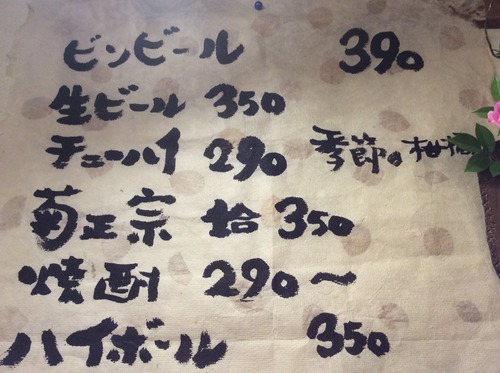 ビンビール 390
生ビール 350
チューハイ 290 季節の柑橘
菊正宗 350
焼酎 290～
ハイボール 350